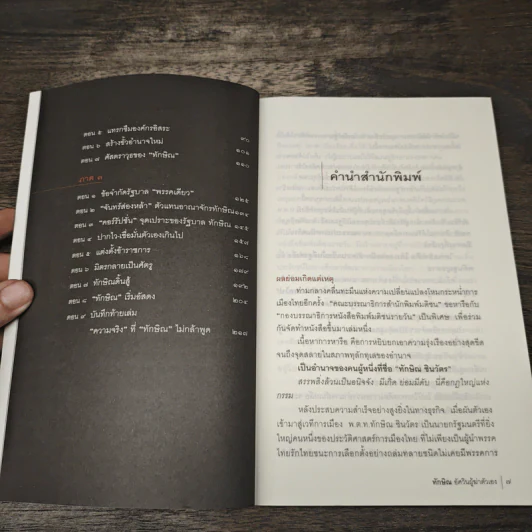 ตอน ๕ แทรกซึมองค์กรอิสระ ๙๐
ตอน ๖ สร้างขั้วอำนาจใหม่ ๑๐๒
ตอน ๗ ศัสตราวุธของ "ทักษิณ" ๑๑๐
ภาค ๓
ตอน ๑ ข้อจำกัดรัฐบาล "พรรคเดียว" ๑๒๕
ตอน ๒ "จันทร์ส่องหล้า" ตัวแทนอาณาจักรทักษิณ ๑๓๔
ตอน ๓ "คอร์รัปชั่น" จุดเปราะของรัฐบาล ทักษิณ ๑๔๕
ตอน ๔ ปากไว-เชื่อมั่นตัวเองเกินไป ๑๕๗
ตอน ๕ แต่งตั้งข้าราชการ
ตอน ๖ มิตรกลายเป็นศัตรู
ตอน ๗ ทักษิณดิ้นสู้
ตอน ๘ "ทักษิณ" เริ่มอัสดง ๒๐๔
ตอน ๙ บันทึกท้ายเล่ม
"ความจริง" ที่ "ทักษิณ" ไม่กล้าพูด ๒๑๘
คำนำสำนักพิมพ์
ผลย่อมเกิดแต่เหตุ
ท่ามกลางคลื่นทะมึนแห่งความเปลี่ยนแปลงโหมกระหน่ำการ
เมืองไทยอีกครั้ง "คณะบรรณาธิการสำนักพิมพ์มติชน" ขอหารือกับ
"กองบรรณาธิการหนังสือพิมพ์มติชนรายวัน" เป็นพิเศษ เพื่อร่วม
กันจัดทำหนังสือขึ้นมาเล่มหนึ่ง
เนื้อหาการหารือ คือการหยิบยกเอาความรุ่งเรืองอย่างสุดขีด
จนถึงจุดสลายในสภาพทุลักทุเลของอำนาจ
เป็นอำนาจของคนผู้หนึ่งที่ชื่อ "ทักษิณ ชินวัตร"
สรรพสิ่งล้วนเป็นอนิจจัง มีเกิด ย่อมมีดับ นี่คือกฎใหญ่แห่ง
กรรม
หลังประสบความสำเร็จอย่างสูงยิ่งในทางธุรกิจ เมื่อผันตัวเอง
เข้ามาสู่เวทีการเมือง พ.ต.ท.ทักษิณ ชินวัตร เป็นนายกรัฐมนตรีที่ยิ่ง
ใหญ่คนหนึ่งของประวัติศาสตร์การเมืองไทย ที่ไม่เพียงเป็นผู้นำพรรค
ไทยรักไทยชนะการเลือกตั้งอย่างถล่มทลายชนิดไม่เคยมีพรรคการ
ทักษิณ อัศวินผู้ฆ่าตัวเอง ๗